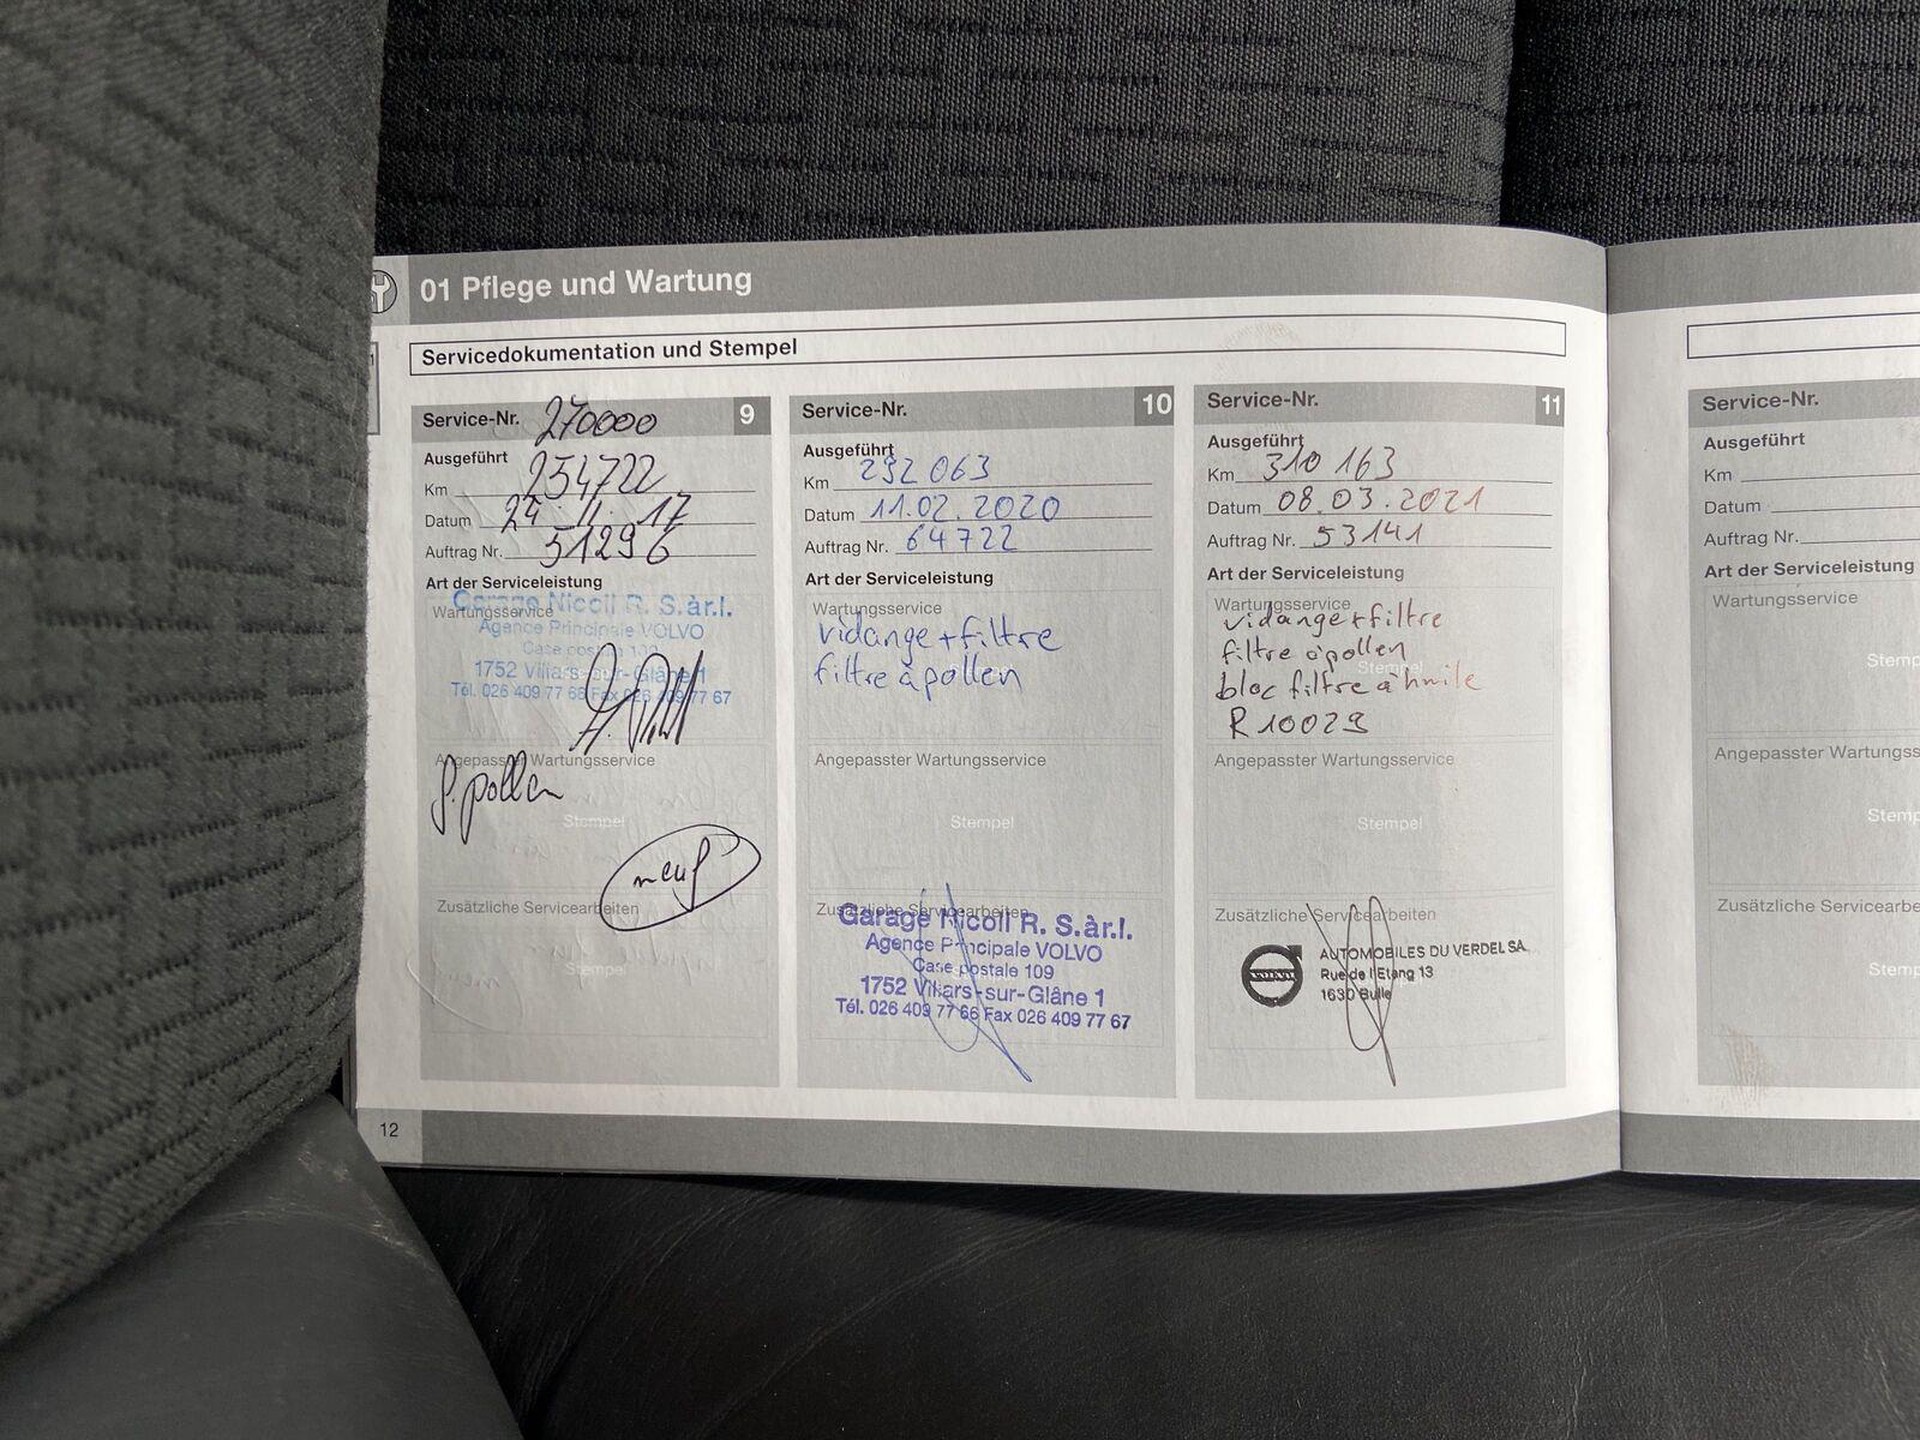 01 Pflege und Wartung
Servicedokumentation und Stempel
Service-Nr. 270000 9
Ausgeführt
Km 254722
Datum 24.11.17
Auftrag Nr. 51296
Art der Serviceleistung
Wartungsservice
Garage Nicoli R. S.àr.l.
Agence Principale VOLVO
Case postale 109
1752 Villars-sur-Glâne 1
Tél. 026 409 77 66 Fax 026 409 77 67
Angepasster Wartungsservice
f. pollen
Stempel
neuf
Zusätzliche Servicearbeiten
Stempel
Service-Nr. 10
Ausgeführt
Km 292 063
Datum 11.02.2020
Auftrag Nr. 64722
Art der Serviceleistung
Wartungsservice
vidange + filtre
filtre à pollen
Angepasster Wartungsservice
Stempel
Zusätzliche Servicearbeiten
Garage Nicoli R. S.àr.l.
Agence Principale VOLVO
Case postale 109
1752 Villars-sur-Glâne 1
Tél. 026 409 77 66 Fax 026 409 77 67
Service-Nr. 11
Ausgeführt
Km 310 163
Datum 08.03.2021
Auftrag Nr. 53141
Art der Serviceleistung
Wartungsservice
vidange + filtre
filtre à pollen
Stempel
bloc filtre à huile
R 10029
Angepasster Wartungsservice
Stempel
Zusätzliche Servicearbeiten
VOLVO
AUTOMOBILES DU VERDEL SA
Rue de l'Etang 13
1630 Bulle
12
Service-Nr.
Ausgeführt
Km
Datum
Auftrag Nr.
Art der Serviceleistung
Wartungsservice
Stemp
Angepasster Wartungss
Stemp
Zusätzliche Servicearbe
Stemp